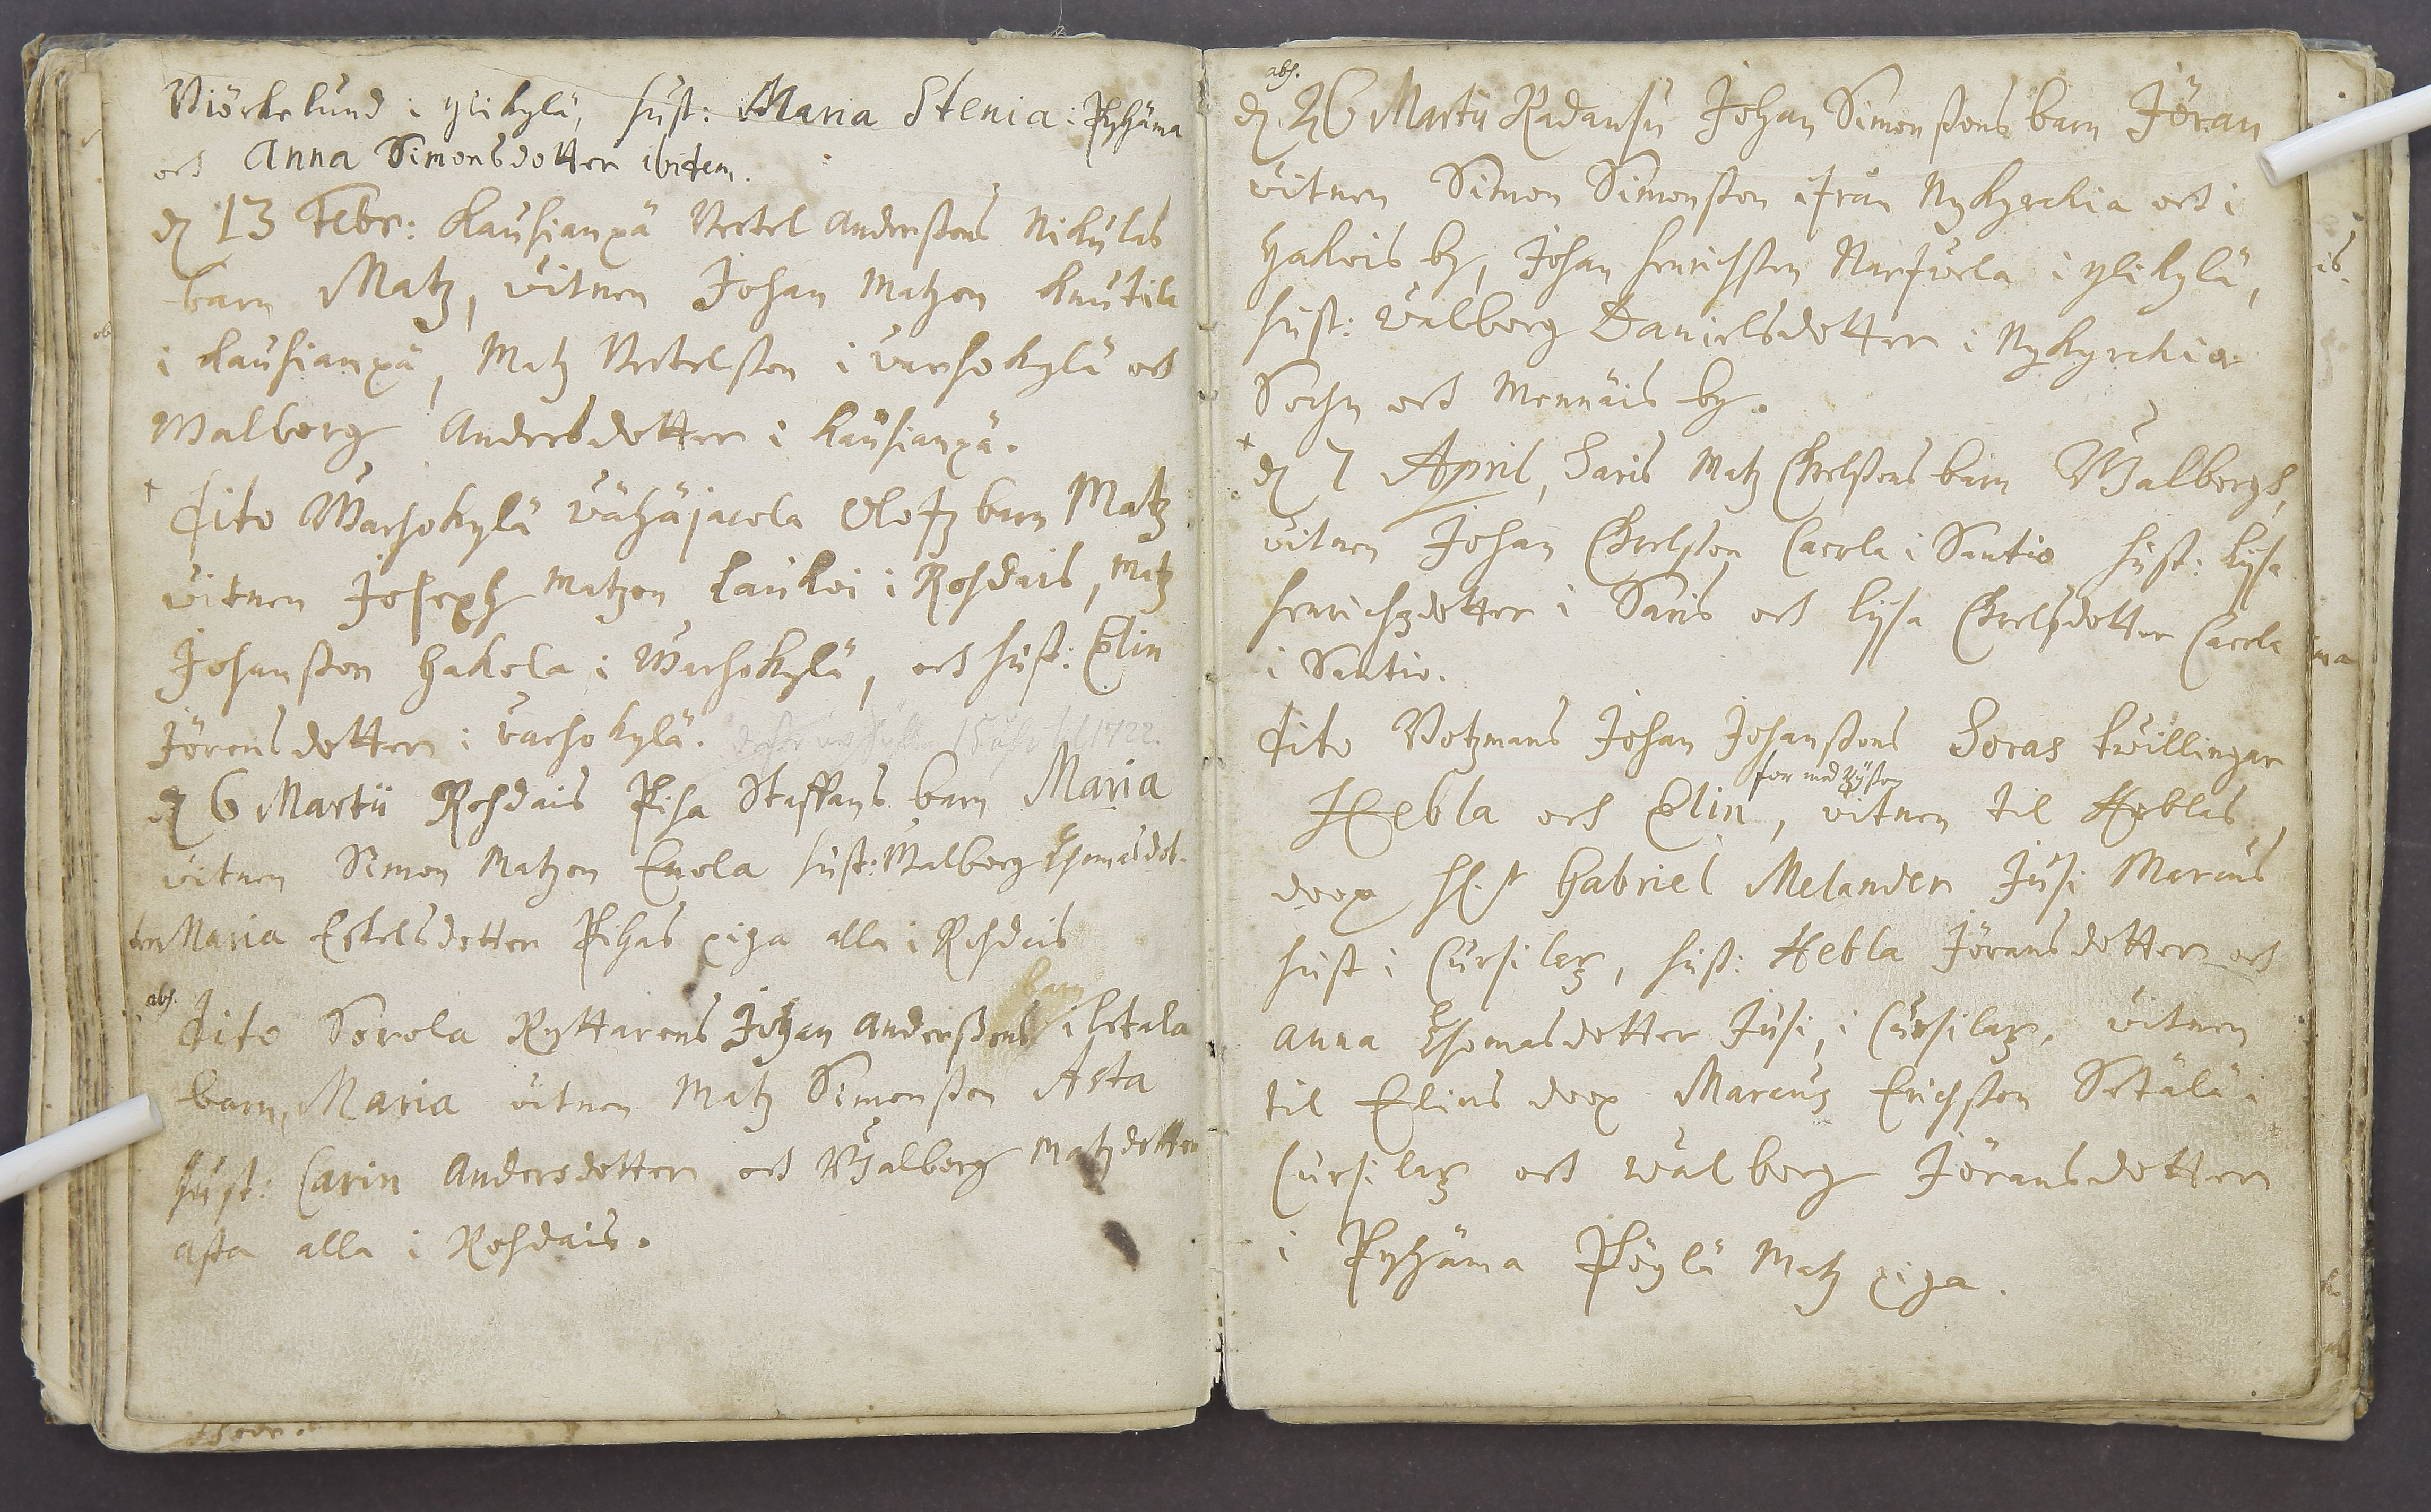 Biörkelund i ylikylä, hust: Maria Stenia i Pyhäma
och Anna Simonsdotter ibidem.
d 13 Febr: Kauhianpä Bertel Anderssons Nikulas
barn Matz, vitnen Johan Matzon Knutila
i Kauhianpä, Matz Bertelsson i varhokylä och
Walborg Andersdotter i Kauhianpä.
† dito Warhokylä Vähäjacola Olofz barn Matz
vitnen Joseph Matzon Laukoi i Rohdais, Matz
Johansson Hakola i Warhokylä, och hust: Elin
Jörensdotter i varhokylä. 1722.
d 6 Martii Rohdais Piha Staffans barn Maria
vitnen Simon Matzon Eerola hust: Walborg Thomasdot-
ter Maria Eskelsdotter Pihas piga alla i Rohdais
abs. barn
dito Sorola Ryttarens Johan Anderssons i letala
barn, Maria vitnen Matz Simonsson Asta
hust: Carin Andersdotter och Walborg Matzdotter
Asta alla i Rohdais.
abs.
d 26 Martii Radansu Johan Simonssons barn Jöran
vitnen Simon Simonsson ifrån Nykyrckia och i
Hakois by, Johan Henrichsson Narfvela i ylikylä,
hust: Walborg Danielsdotter i Nykyrckia
Sochn och Mennäis by.
† d 7 April, Saris Matz Chrelssons barn Walborgh,
vitnen Johan Chrelsson Caerla i Santio hust: Lysa
Henrichzdotter i Saris och Lysa Chrelsdotter Caerla
i Santio.
dito Botzmans Johan Johanssons Soras tvillingar
for med Ryssen
Hebla och Elin, vitnen til Heblas
doop H:r Gabriel Melander Jusi Marcus
hust i Cursilax, hust: Hebla Jöransdotter och
Anna Thomasdotter Jusi, i Cursilax, vitnen
til Elins doop Marcus Erichsson Sätälä i
Cursilax och Walborg Jöransdotter
i Pyhäma Pöylä Matz piga.